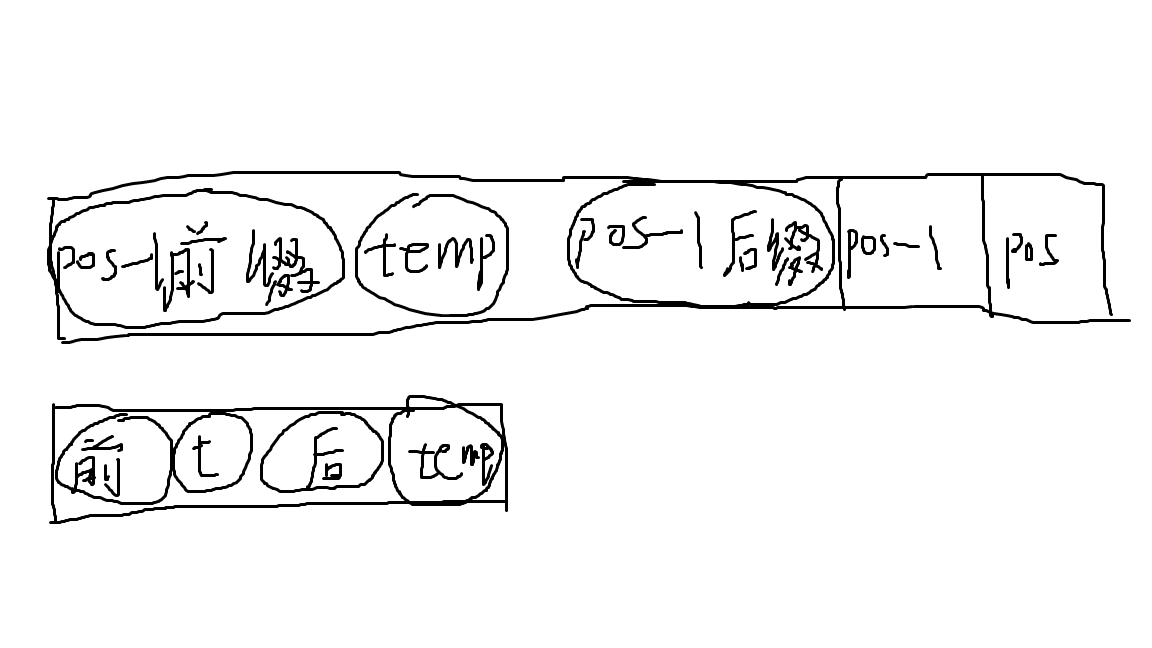 pos-1前缀 temp pos-1后缀 pos-1 pos
前 t 后 temp